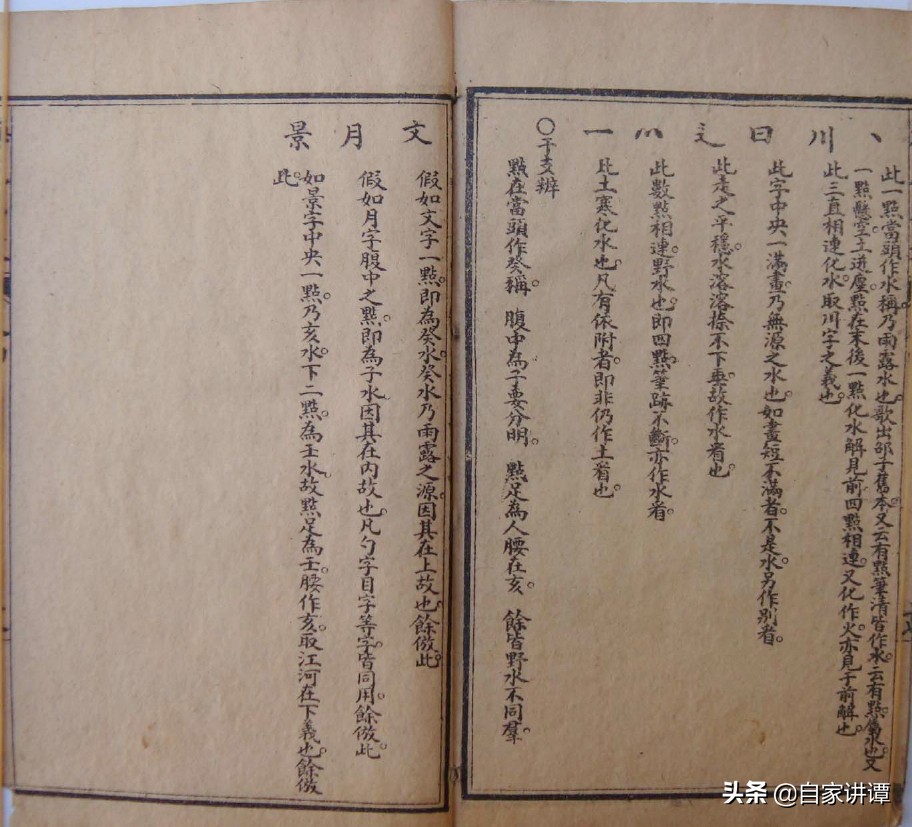 丶
此一點當頭作水稱乃雨露水也歌出邵子舊本又云有點筆清皆作水云有點屬水也又
一點懸空土迸塵點在末後一點化水解見前四點相連又化作火亦見于前解也
川
此三直相連化水取川字之義也
曰
此字中央一滿畫乃無源之水也如畫短不滿者不是水另作别看
辶
此走之平穩水溶溶捺不下垂故作水看也
灬
此數點相連野水也即四點筆跡不斷亦作水看
一
此土寒化水也凡有依附者即非仍作土看也
〇干支辨
點在當頭作癸稱 腹中為子要分明 點足為人腰在亥 餘皆野水不同羣
文
假如文字一點即為癸水癸水乃雨露之源因其在上故也餘倣此
月
假如月字腹中之點即為子水因其在内故也凡勺字目字等字皆同用餘倣此
景
如景字中央一點乃亥水下二點為壬水故點足為壬腰作亥取江河在下義也餘倣
此
头条 @自家讲谭